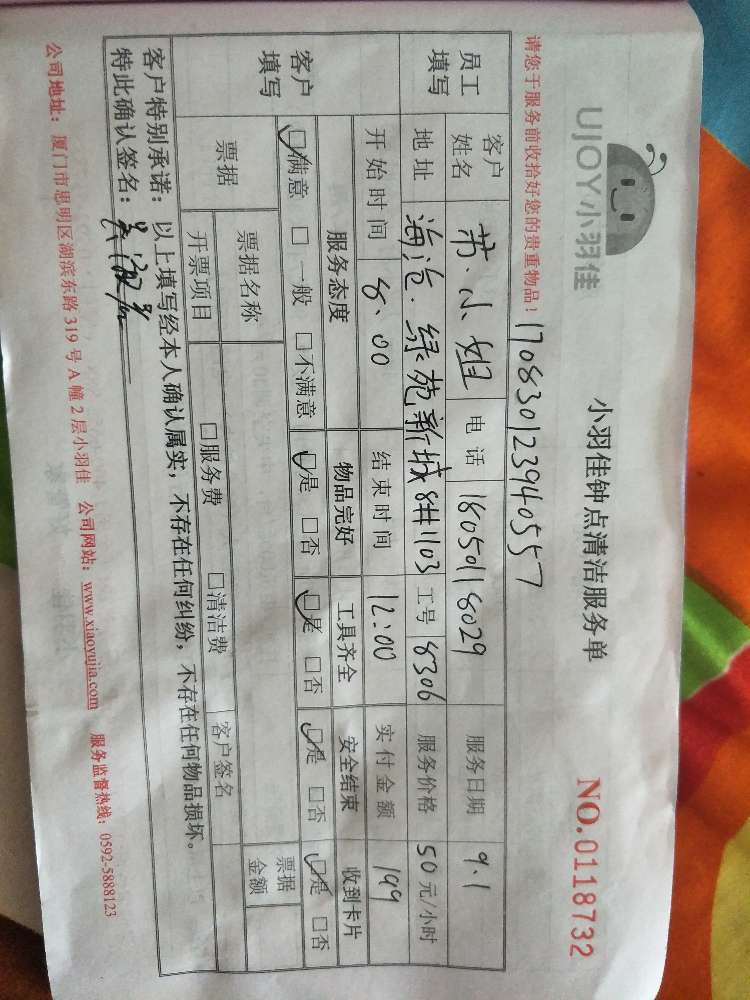 UJOY小羽佳
小羽佳钟点清洁服务单
NO.0118732
请您于服务前收拾好您的贵重物品！
170830123940557
员工填写 客户姓名 苏小姐 电话 18050118029 服务日期 9.1
地址 海沧.绿苑新城8#1103 工号 8306 服务价格 50元/小时
开始时间 8:00 结束时间 12:00 实付金额 199
客户填写 服务态度 物品完好 工具齐全 安全结束 收到卡片
☑满意 □一般 □不满意 ☑是 □否 ☑是 □否 ☑是 □否 ☑是 □否
票据 票据名称 票据金额
开票项目 □服务费 □清洁费 客户签名
客户特别承诺：以上填写经本人确认属实，不存在任何纠纷，不存在任何物品损坏。
特此确认签名：
公司地址：厦门市思明区湖滨东路319号A幢2层小羽佳 公司网站：www.xiaoyujia.com 服务监督热线：0592-5888123